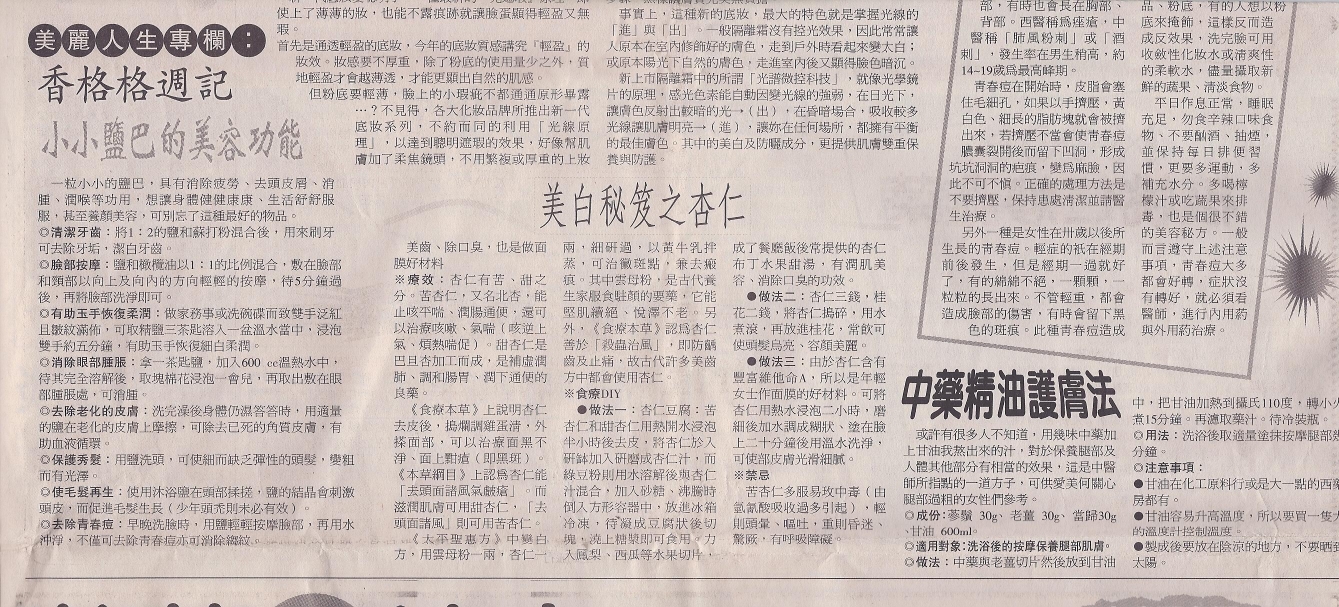 美麗人生專欄：
香格格週記
小小鹽巴的美容功能
一粒小小的鹽巴，具有消除疲勞、去頭皮屑、消
腫、潤喉等功用，想讓身體健健康康、生活舒舒服
服，甚至養顏美容，可別忘了這種最好的物品。
◎清潔牙齒：將1：2的鹽和蘇打粉混合後，用來刷牙
可去除牙垢，潔白牙齒。
◎臉部按摩：鹽和橄欖油以1：1的比例混合，敷在臉部
和頸部以向上及向內的方向輕輕的按摩，待5分鐘過
後，再將臉部洗淨即可。
◎有助玉手恢復柔潤：做家務事或洗碗碟而致雙手泛紅
且皺紋滿佈，可取精鹽三茶匙溶入一盆溫水當中，浸泡
雙手約五分鐘，有助玉手恢復細白柔潤。
◎消除眼部腫脹：拿一茶匙鹽，加入600 cc溫熱水中，
待其完全溶解後，取塊棉花浸泡一會兒，再取出敷在眼
部腫脹處，可消腫。
◎去除老化的皮膚：洗完澡後身體仍濕答答時，用適量
的鹽在老化的皮膚上摩擦，可除去已死的角質皮膚，有
助血液循環。
◎保護秀髮：用鹽洗頭，可使細而缺乏彈性的頭髮，變粗
而有光澤。
◎使毛髮再生：使用沐浴鹽在頭部揉搓，鹽的結晶會刺激
頭皮，而促進毛髮生長（少年頭禿則未必有效）。
◎去除青春痘：早晚洗臉時，用鹽輕輕按摩臉部，再用水
沖淨，不僅可去除青春痘亦可消除皺紋。
使上了薄薄的妝，也能不露痕跡就讓臉蛋顯得輕盈又無
瑕。
首先是通透輕盈的底妝，今年的底妝質感講究『輕盈』的
妝效。妝感要不厚重，除了粉底的使用量少之外，質
地輕盈才會越薄透，才能更顯出自然的肌感。
但粉底要輕薄，臉上的小瑕疵不都通通原形畢露
…？不見得，各大化妝品牌所推出新一代
底妝系列，不約而同的利用「光線原
理」，以達到聰明遮瑕的效果，好像幫肌
膚加了柔焦鏡頭，不用繁複或厚重的上妝
事實上，這種新的底妝，最大的特色就是掌握光線的
「進」與「出」。一般隔離霜沒有控光效果，因此常常讓
人原本在室內修飾好的膚色，走到戶外時看起來變太白；
或原本陽光下自然的膚色，走進室內後又顯得臉色暗沉。
新上市隔離霜中的所謂「光譜微控科技」，就像光學鏡
片的原理，感光色素能自動因變光線的強弱，在日光下，
讓膚色反射出較暗的光→（出），在昏暗場合，吸收較多
光線讓肌膚明亮→（進），讓妳在任何場所，都擁有平衡
的最佳膚色。其中的美白及防曬成分，更提供肌膚雙重保
養與防護。
美白秘笈之杏仁
美齒、除口臭，也是做面
膜好材料
※療效：杏仁有苦、甜之
分。苦杏仁，又名北杏，能
止咳平喘、潤腸通便，還可
以治療咳嗽、氣喘（咳逆上
氣、煩熱喘促）。甜杏仁是
巴旦杏加工而成，是補虛潤
肺、調和腸胃、潤下通便的
良藥。
《食療本草》上說明杏仁
去皮後，搗爛調雞蛋清，外
搽面部，可以治療面黑不
淨、面上䵟皰（即黑斑）。
《本草綱目》上認爲杏仁能
「去頭面諸風氣皻皰」。而
滋潤肌膚可用甜杏仁，「去
頭面諸風」則可用苦杏仁。
《太平聖惠方》中變白
方，用雲母粉一兩，杏仁一
兩，細研過，以黃牛乳拌
蒸，可治黴斑點，兼去瘢
痕。其中雲母粉，是古代養
生家服食駐顏的要藥，它能
堅肌續絕、悅澤不老。另
外，《食療本草》認爲杏仁
善於「殺蟲治風」，即防齲
齒及止痛，故古代許多美齒
方中都會使用杏仁。
※食療DIY
●做法一：杏仁豆腐：苦
杏仁和甜杏仁用熱開水浸泡
半小時後去皮，將杏仁於入
研缽加入研磨成杏仁汁，而
綠豆粉則用水溶解後與杏仁
汁混合，加入砂糖、沸騰時
倒入方形容器中，放進冰箱
冷凍，待凝成豆腐狀後切
塊，澆上糖漿即可食用。力
入鳳梨、西瓜等水果切片，
成了餐廳飯後常提供的杏仁
布丁水果甜湯，有潤肌美
容、消除口臭的功效。
●做法二：杏仁三錢，桂
花二錢，將杏仁搗碎，用水
煮滾，再放進桂花，常飲可
使頭髮烏亮、容顏美麗。
●做法三：由於杏仁含有
豐富維他命A，所以是年輕
女士作面膜的好材料。可將
杏仁用熱水浸泡二小時，磨
細後加水調成糊狀、塗在臉
上二十分鐘後用溫水洗淨，
可使部皮膚光滑細膩。
※禁忌
苦杏仁多服易致中毒（由
氫氰酸吸收過多引起），輕
則頭暈、嘔吐，重則昏迷、
驚厥，有呼吸障礙。
部，有時也會長在胸部、
背部。西醫稱爲座瘡，中
醫稱「肺風粉刺」或「酒
刺」，發生率在男生稍高，約
14~19歲爲最高峰期。
青春痘在開始時，皮脂會塞
住毛細孔，如果以手擠壓，黃
白色、細長的脂肪塊就會被擠
出來，若擠壓不當會使青春痘
膿囊裂開後而留下凹洞，形成
坑坑洞洞的疤痕，變爲麻臉，因
此不可不慎。正確的處理方法是
不要擠壓，保持患處清潔並請醫
生治療。
另外一種是女性在卅歲以後所
生長的青春痘。輕症的祇在經期
前後發生，但是經期一過就好
了，有的綿綿不絕，一顆顆，一
粒粒的長出來。不管輕重，都會
造成臉部的傷害，有時會留下黑
色的斑痕。此種青春痘造成
品、粉底，有的人想以粉
底來掩飾，這樣反而造
成反效果，洗完臉可用
收斂性化妝水或清爽性
的柔軟水，儘量攝取新
鮮的蔬果、清淡食物。
平日作息正常，睡眠
充足，勿食辛辣口味食
物、不要酗酒、抽煙，
並保持每日排便習
慣，更要多運動，多
補充水分。多喝檸
檬汁或吃蔬果來排
毒，也是個很不錯
的美容秘方。一般
而言遵守上述注意
事項，青春痘大多
都會好轉，症狀沒
有轉好，就必須看
醫師，進行內用藥
與外用葯治療。
中藥精油護膚法
或許有很多人不知道，用幾味中藥加
上甘油我蒸出來的汁，對於保養腿部及
人體其他部分有相當的效果，這是中醫
師所指點的一道方子，可供愛美何關心
腿部過粗的女性們參考。
◎成份：蔘鬚 30g、老薑 30g、當歸30g
、甘油 600ml。
◎適用對象：洗浴後的按摩保養腿部肌膚。
◎做法：中藥與老薑切片然後放到甘油
中，把甘油加熱到攝氏110度，轉小火
煮15分鐘。再濾取藥汁。待冷裝瓶。
◎用法：洗浴後取適量塗抹按摩腿部幾
分鐘。
◎注意事項：
●甘油在化工原料行或是大一點的西藥
房都有。
●甘油容易升高溫度，所以要買一隻大
的溫度計控制溫度。
●製成後要放在陰涼的地方，不要晒到
太陽。